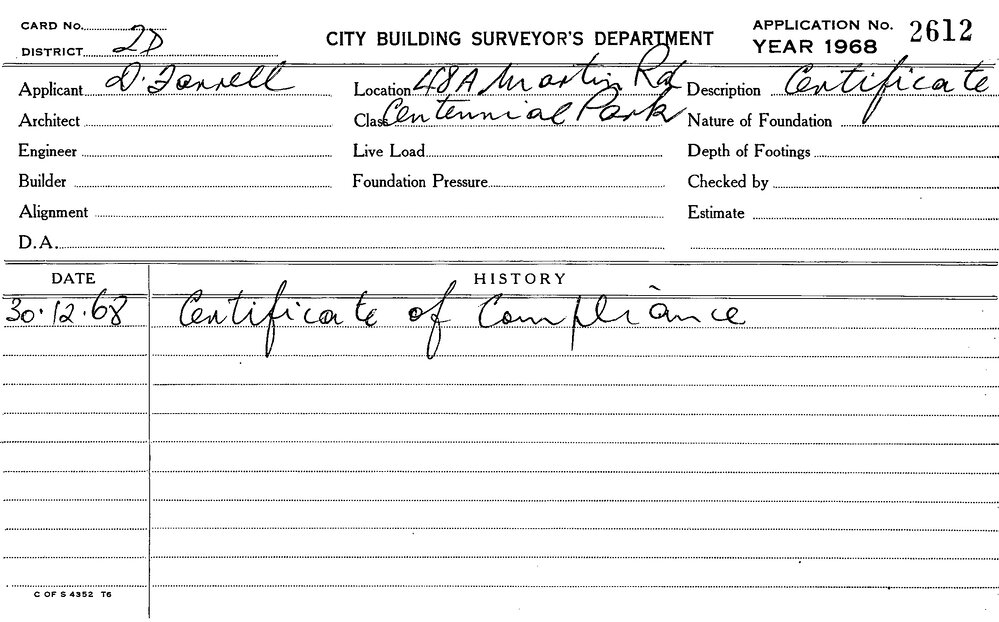 CARD No.
APPLICATION No. 2612
DISTRICT 2D
CITY BUILDING SURVEYOR'S DEPARTMENT
YEAR 1968
Applicant D. Farrell
Location 48A Martin Rd
Description Certificate
Architect
Class Centennial Park
Nature of Foundation
Engineer
Live Load
Depth of Footings
Builder
Foundation Pressure
Checked by
Alignment
Estimate
D.A.
DATE
HISTORY
30.12.68 Certificate of Compliance
C OF S 4352 T6